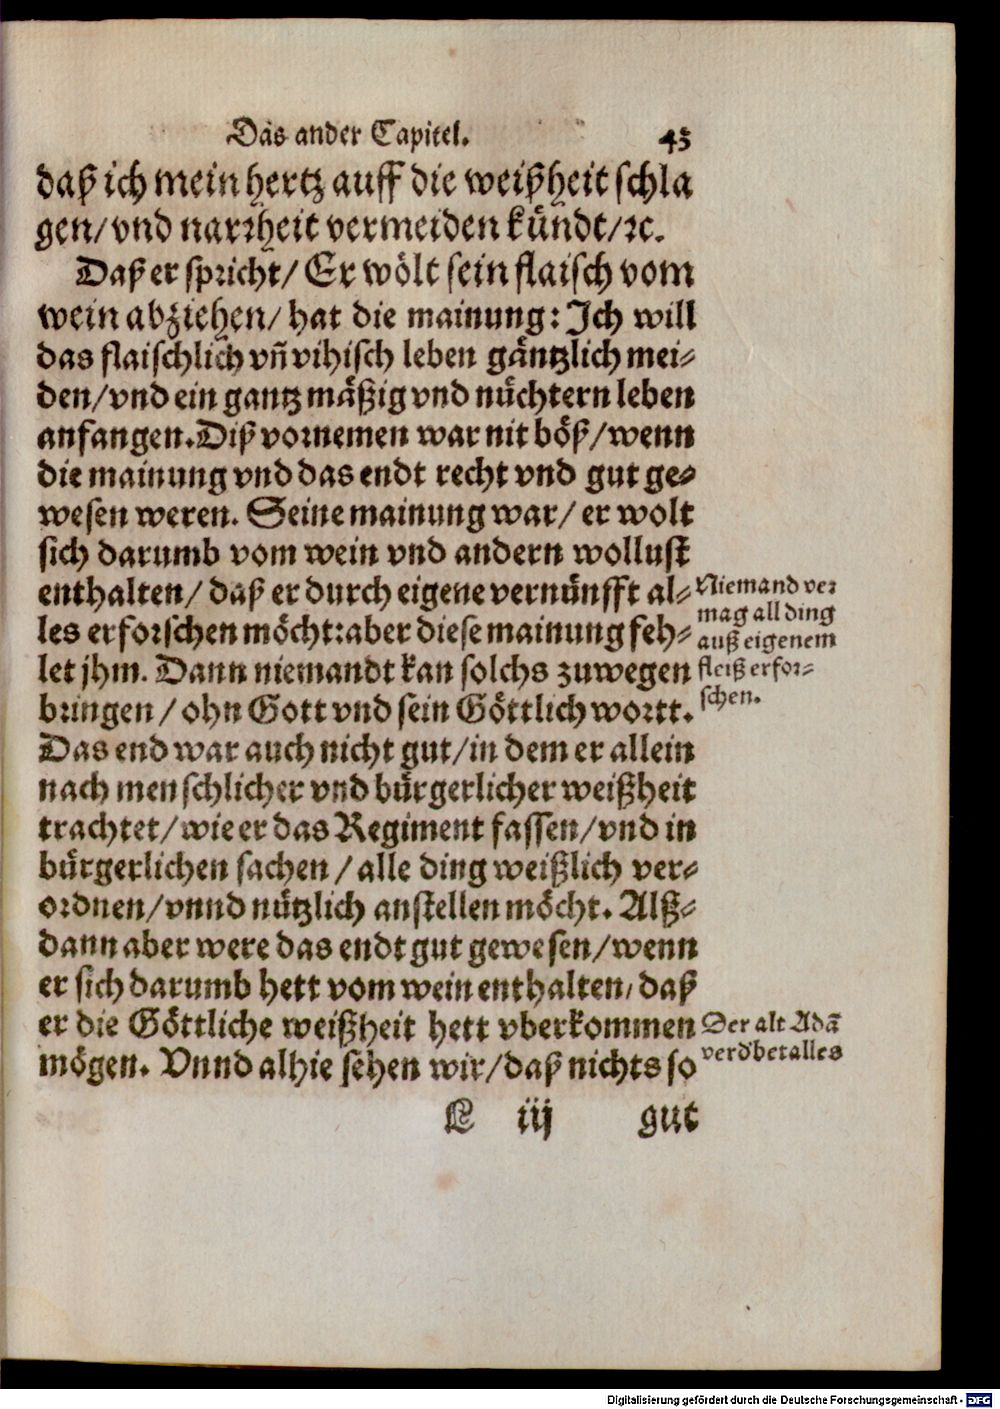 Das ander Capitel. 43
daß ich mein hertz auff die weißheit schla
gen/ vnd narrheit vermeiden kündt/ ꝛc.
Daß er spricht/ Er wölt sein flaisch vom
wein abziehen/ hat die mainung: Ich will
das flaischlich vñ vihisch leben gäntzlich mei-
den/ vnd ein gantz mäßig vnd nüchtern leben
anfangen. Diß vornemen war nit böß/ wenn
die mainung vnd das endt recht vnd gut ge-
wesen weren. Seine mainung war/ er wolt
sich darumb vom wein vnd andern wollust
enthalten/ daß er durch eigene vernünfft al-
les erforschen möcht: aber diese mainung feh-
let jhm. Dann niemandt kan solchs zuwegen
bringen/ ohn Gott vnd sein Göttlich wortt.
Niemand ver
mag all ding
auß eigenem
fleiß erfor-
schen.
Das end war auch nicht gut/ in dem er allein
nach menschlicher vnd bürgerlicher weißheit
trachtet/ wie er das Regiment fassen/ vnd in
bürgerlichen sachen/ alle ding weißlich ver-
ordnen/ vnnd nützlich anstellen möcht. Alß-
dann aber were das endt gut gewesen/ wenn
er sich darumb hett vom wein enthalten, daß
er die Göttliche weißheit hett vberkommen
mögen. Vnnd alhie sehen wir/ daß nichts so
Der alt Adã
verd'bet alles
L iij gut
Digitalisierung gefördert durch die Deutsche Forschungsgemeinschaft - DFG